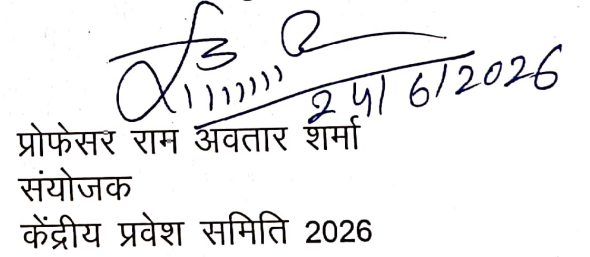 24/6/2026
प्रोफेसर राम अवतार शर्मा
संयोजक
केंद्रीय प्रवेश समिति 2026